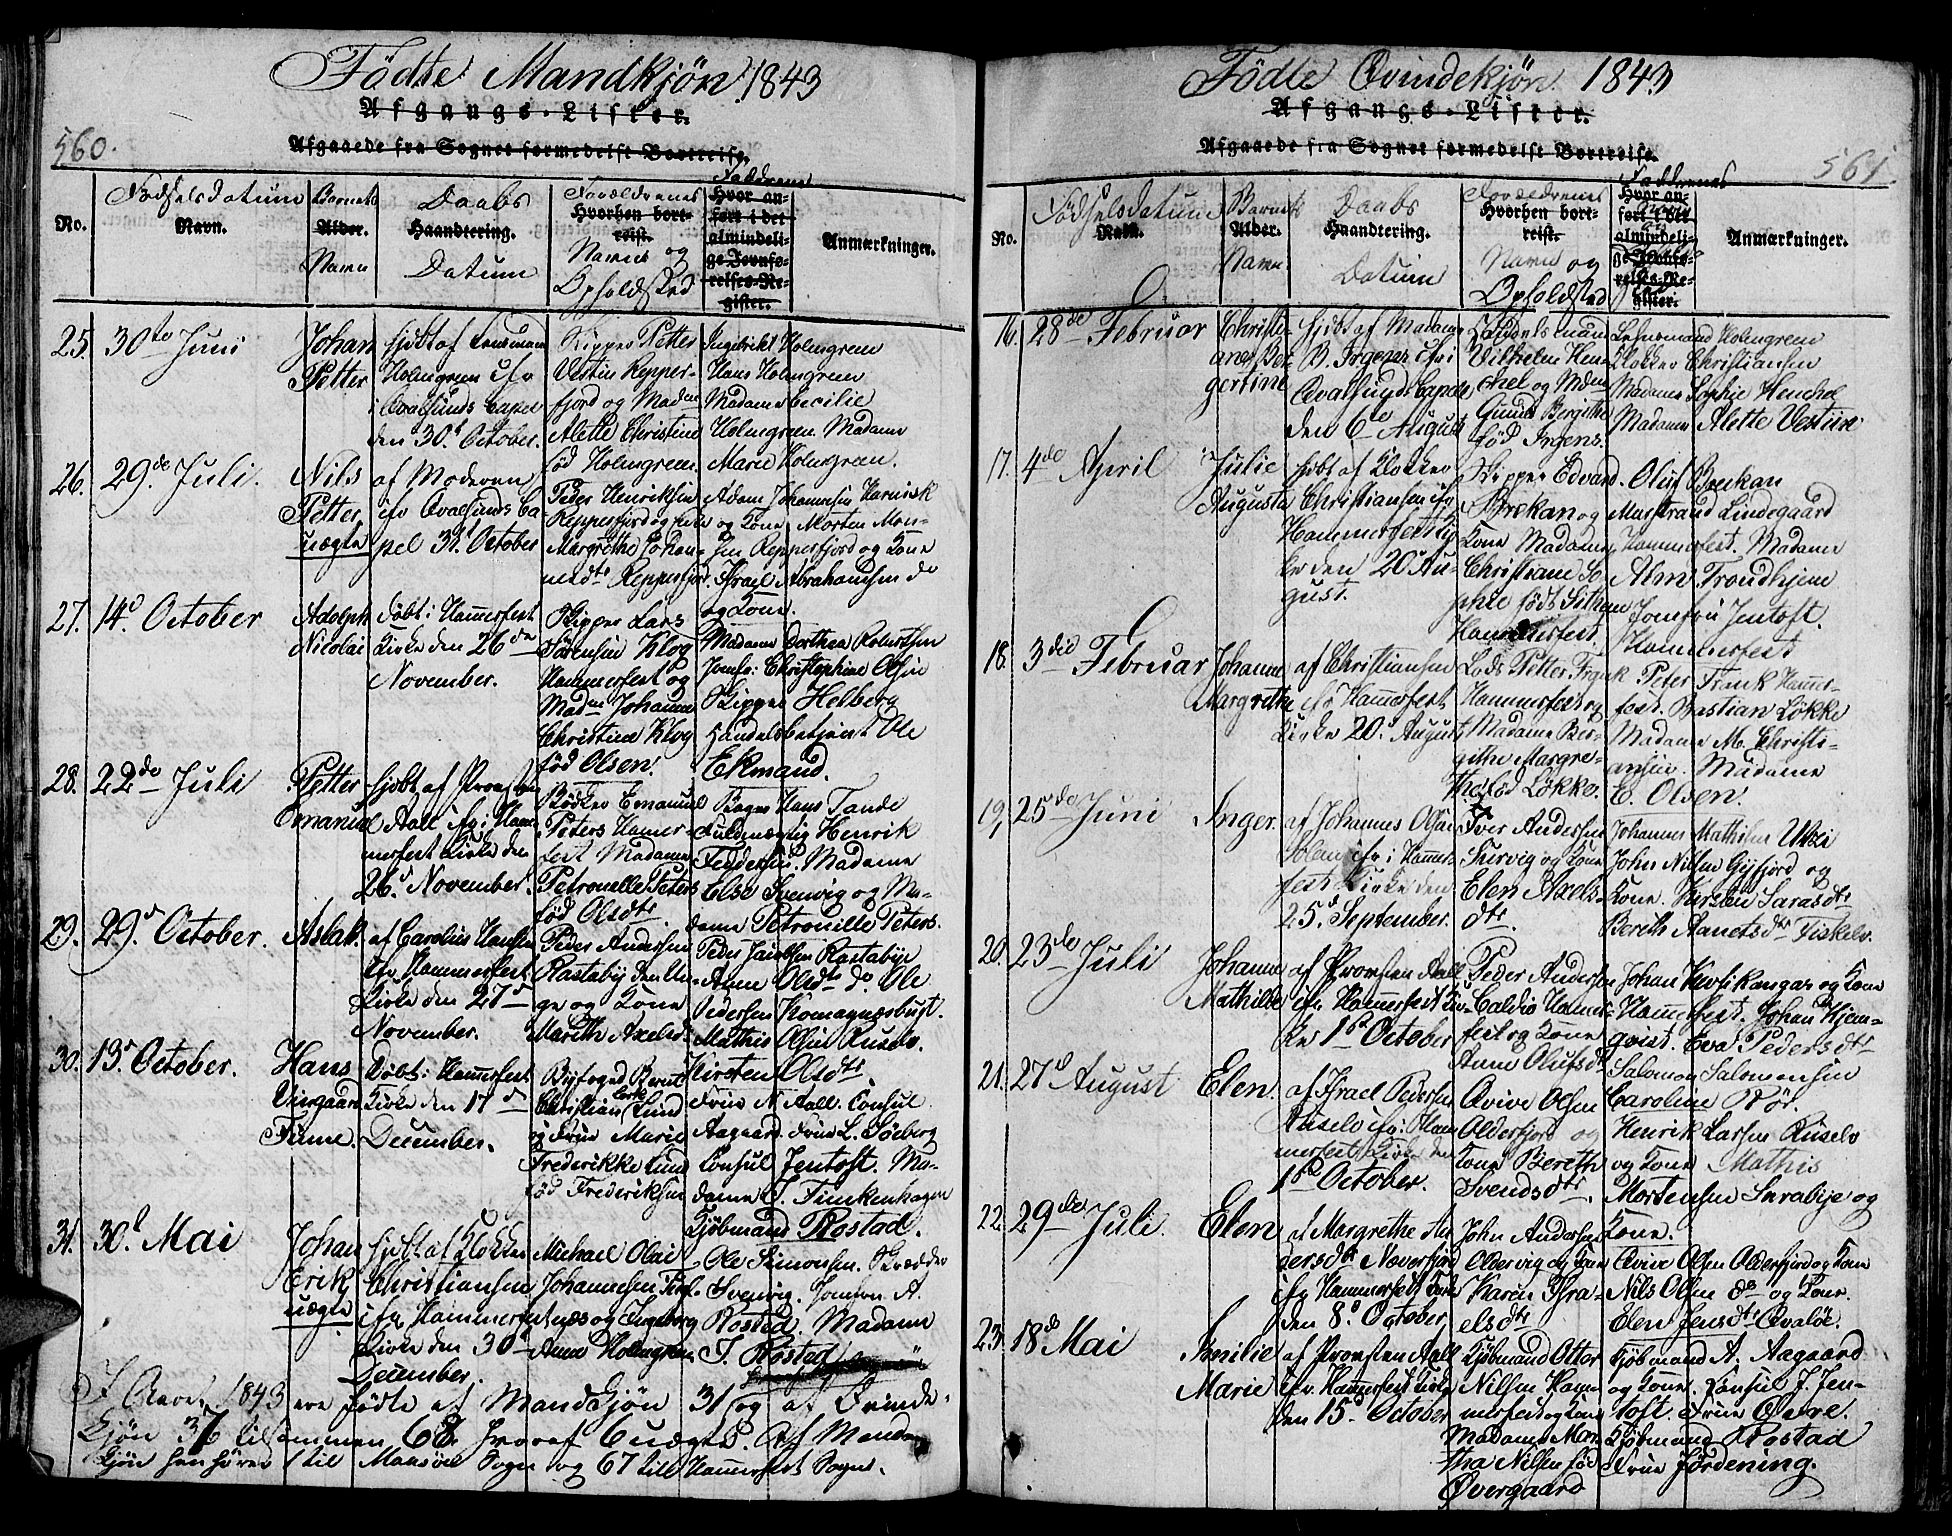 Födte Mandkjön 1843
Afgangs-Lister.
560.
Afgaaede fra Sognet formedelst Bortreise.
No.
Födselsdatum
Navn.
Barnets
Alder.
Navn
Daabs
Haandtering.
Datum
Forældrenes
Hvorhen bort-
reist.
Navne og
Opholdsted
Faddrene
Hvor an-
ført i det
almindeli-
ge Jevnfø-
relses-Re-
gister.
Anmærkninger.
25. 30te Juni
Johan
Petter
hjdbt af Lensmand
Holmgreen
i Qvalsunds Capel
den 30d October.
Skipper Petter
Vestin Repper-
fjord og Madm
Alette Christine
född Holmgreen
Ingebrikt Holmgreen
Hans Holmgreen
Madame Cecilie
Holmgreen. Madame
Marie Holmgreen.
26. 29de Juli.
Nils
Petter
uægte
af Moderen
i Qvalsunds Ca-
pel 31t October
Peder Henriksen
Repperfjord og
Margrethe Johan-
nesdtr Repperfjor
Adam Johannesen
og Kone Morten Mon-
sen Repperfjord og Kone
Israel Abrahamsen do
og Kone.
27. 14d October
Adolph
Nicolai
Döbt i Hammerfest
Kirke den 26de
November.
Skipper Lars
Sörensen Klog
Hammerfest og
Madm Johanne
Christine Klog
föd Olsen.
Madame Dorthea Robertsen
Jomfr: Christophine Olsen
Skipper Helberg
Handelsbetjent Ole
Ekmand.
28. 22de Juli
Petter
Emanuel
hjdbt af Provsten
Aall i Ham-
merfest Kirke den
26d November.
Bödker Emanuel
Peters Hamer-
fest Madame
Petronelle Peters
föd Olsdtr
Bager Hans Tande
Fuldmægtig Henrik
Feddersen. Madame
Else Svenvig og Ma-
dame Petronille Peters.
29. 29d October.
Aslak.
af Carolius Hansen
Hammerfest
Kirke den 27d
November.
Peder Andersen
Rastabÿ den Un-
ge og Kone
Marith Axelsd
Peder Jacobsen Rastabÿe
Anne Olsdtr do. Ole
Pedersen Komagnæsbugt.
Mathis Olsen Ruselv.
Kirsten Olsdtr
30. 13d October.
Hans
Viergaard
Finne.
Döbt i Hammerfest
Kirke den 17d
December.
Byfoged Bernt
Christian Lund
og Frue Marie
Frederikke Lund
föd Frederiksen
Frue N. Aall. Consul
Aagaard. Frue L. Söeberg
Consul Jentoft. Ma-
dame J. Finckenhagen
Kjöbmand Rostad.
31. 30d Mai
Johan
Erik
uægte
hjdbt af Klokker
Christiansen
Hammerfest
Kirke den 30d
December.
Michael Olai
Johannesen
og Ingeborg
Anne Holmgreen
Ole Simonsen. Skrædder
Svenvig. Jomfru A.
Rostad. Madame
J. Rostad
I Aaret 1843 ere födte af Mandkjön 31 og af Qvinde-
kjön 37 tilsammen 68 hvoraf 6 uægte. Af Mand-
kjön henhörer 1 til Maasöe Sogn og 67 till Hammerfest Sogn.
Födte Qvindekjön 1843
Afgangs-Lister.
Afgaaede fra Sognet formedelst Bortreise.
561.
No.
Födselsdatum
Navn.
Barnets
Alder.
Navn.
Daabs
Haandtering.
Datum
Forældrenes
Hvorhen bort-
reist.
Navne og
Opholdsted
Faddrenes
Hvor an-
ført i det
almindeli-
ge Jevnfø-
relses-Re-
gister.
Anmærkninger.
16. 28de Februar
Christi-
ane Ber-
gertine
hjdbt af Madame
B. Irgens i
Qvalsunds Capel
den 6te August
Handelsmand
Vilhelm Hen-
chel og Mdm
Gunild Bergitte
föd Irgens.
Lehnsmand Holmgreen
Klokker Christiansen
Madame Sophie Henchel
Madame Alette Vestin
17. 4de April
Julie
Augusta
hjdbt af Klokker
Christiansen i
Hammerfest
Kirke den 20 Au-
gust.
Skipper Edvard
Brekan og
Kone Madame
Christiane So-
phie född
Hammerfest.
Oluf Brekan
Mustraud Lindegaard
Hammerfest. Madame
Alm Trondhjem
Jomfru Jentoft.
Hammerfest
18. 3die Februar
Johanne
Margrethe
af Christiansen
i Hamerfest
Kirke 20. August
Lods Petter Frank
Hammerfest og
Madame Ber-
githe Margre-
the föd Lökke.
Peter Frank Hamer-
fest. Bastian Lökke
Madame M. Christi-
ansen. Madame
E. Olsen.
19. 25de Juni
Inger.
af Johannes Olsen
i Hamer-
fest Kirke den
25d September.
Iver Andersen
Survig og Kone
Elen Axels-
dtr.
Johannes Mathisen
John Nilsen Gyfjord og
Kone. Kirsten Larsdtr
Bereth Aanets dtr Fiskelv.
20. 23de Juli
Johanne
Mathilde
af Provsten Aall
i Hamerfest Kir-
ke 1ste October
Peder Andersen
Hamer-
fest og Kone
Anne Olufsdtr
Johan Kersikangas og Kone
Hamerfest. Johan Hjem-
qvist. Eva Pedersdtr
Salomon Salomonsen
Caroline Rör.
21. 27d August
Elen.
af Israel Pedersen
Ruselv i Ham-
merfest Kirke den
1ste October.
Qvive Olsen
Olderfjord og
Kone Bereth
Svendsdtr.
Henrik Larsen Ruselv
og Kone Mathis
Mortensen Sarabÿe og
Kone.
22. 29de Juli.
Elen
af Margrethe An-
dersdtr Næverfjord
i Hammerfest Kirke
den 8d October,
John Andersen
Oldervig og Kone
Karen Isra-
elsdtr
Qvive Olsen Olderfjord og Kone
Nils Olsen do og Kone.
Elen Jensdtr Qvalöe.
23. 18de Mai
Emilie
Marie
af Provsten Aall
i Hamerfest Kirke
den 15d October
Kjöbmand Ottar
Nilsen Ham-
merfest og Kone
Madame Mar-
tha Nilsen föd
Övergaard
Kjöbmand A. Aagaard
og Kone. Consul J. Jen-
toft. Frue Övre.
Kjöbmand Rostad
Frue Jördening.